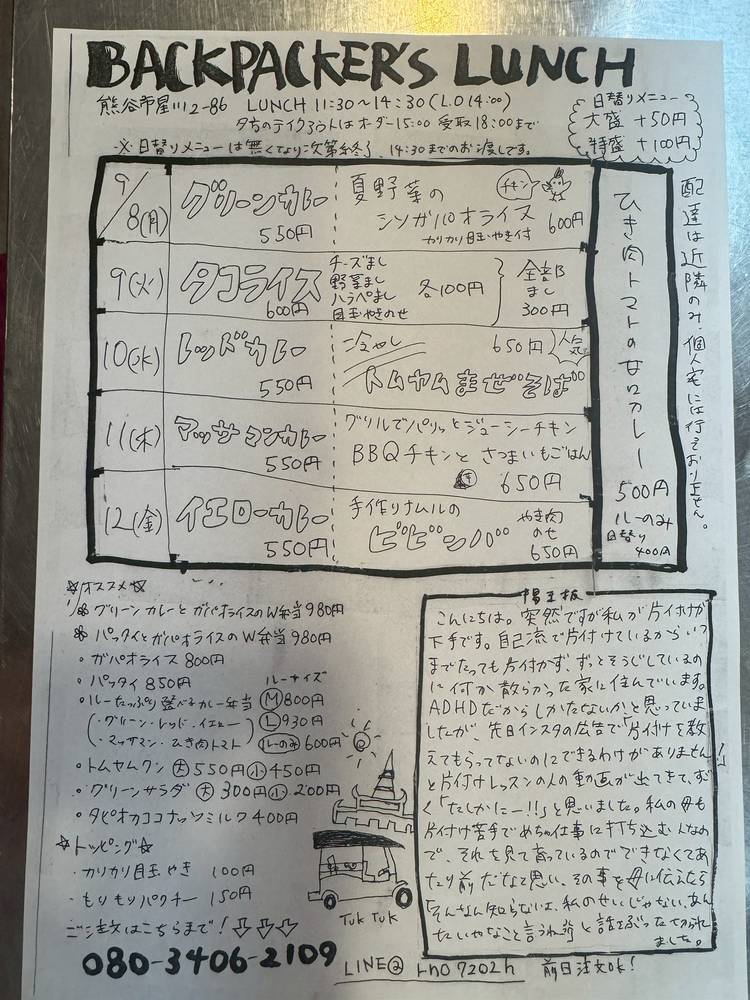 BACKPACKER'S LUNCH
熊谷市星川2-86 LUNCH 11:30〜14:30(L.O 14:00)
夕方のテイクアウトはオーダー15:00 受取18:00まで
※日替りメニューは無くなり次第終了、14:30までのお渡しです。
日替りメニュー
大盛 +50円
特盛 +100円
9/8(月)
グリーンカレー
550円
夏野菜の
シソガパオライス
カリカリ目玉やき付
チキン
600円
9(火)
タコライス
600円
チーズまし
野菜まし
ハラペまし
目玉やきのせ
各100円
全部
まし
300円
10(水)
レッドカレー
550円
冷やし
650円
人気
トムヤムまぜそば
11(木)
マッサマンカレー
550円
グリルでパリッとジューシーチキン
BBQチキンとさつまいもごはん
650円
12(金)
イエローカレー
550円
手作りナムルの
ビビンバ
やき肉
のせ
650円
ひき肉トマトの甘口カレー
500円
ルーのみ
日替り
400円
配達は近隣のみ、個人宅には行っておりません。
☆オススメ☆
グリーンカレーとガパオライスのW弁当 980円
パッタイとガパオライスのW弁当 980円
・ガパオライス 800円
・パッタイ 850円
・ルーたっぷり選べるカレー弁当
(・グリーン・レッド・イエロー
・マッサマン・ひき肉トマト)
ルーサイズ
M 800円
L 930円
ルーのみ 600円
・トムヤムクン 大 550円 小 450円
・グリーンサラダ 大 300円 小 200円
・タピオカココナッツミルク 400円
☆トッピング☆
・カリカリ目玉やき 100円
・もりもりパクチー 150円
ご注文はこちらまで!
080-3406-2109
Tuk Tuk
LINE@ rno7202h 前日注文OK!
陽王板
こんにちは。突然ですが私が片付けが
下手です。自己流で片付けているからいつ
までたっても片付かず、ずっとそうじしているの
に何か散らかった家に住んでいます。
ADHDだからしかたないか!と思っていま
したが、先日インスタの広告で「片付けを教
えてもらってないのにできるわけがありません!」
と片付けレッスンの人の動画が出てきて、すご
く「たしかにー!!」と思いました。私の母も
片付け苦手でめちゃ仕事に打ち込む人なの
で、それを見て育っているのでできなくてあ
たり前だなと思い、その事を母に伝えたら
「そんなん知らないよ、私のせいじゃない、あん
たいやなこと言うね」と話をぶった切られ
ました。